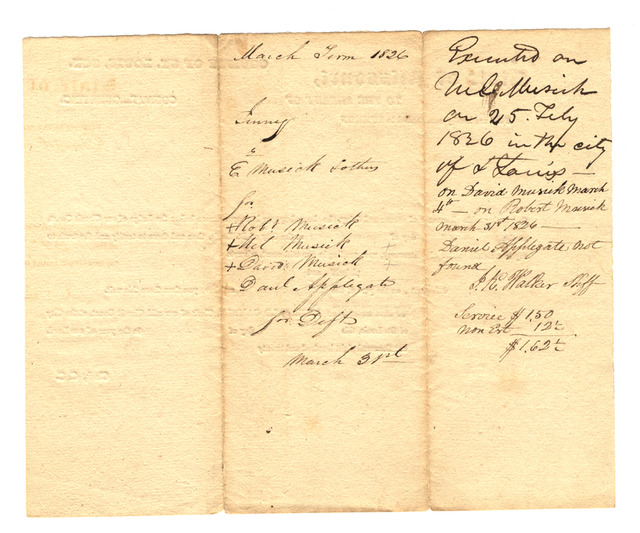 March Term 1826
Jinny
vs
E Musick & others
for
+ Robt Musick
+ Mcl Musick
+ David Musick
- Danl Applegate
for Deft
March 31st
Executed on
Musick
on 25. Feby
1826 in the city
of St Louis —
on David Musick March
4th — on Robert Musick
March 31st 1826 —
Daniel Applegate not
found
Walker Shff
Service $1.50
Non Est 12½
$1.62½